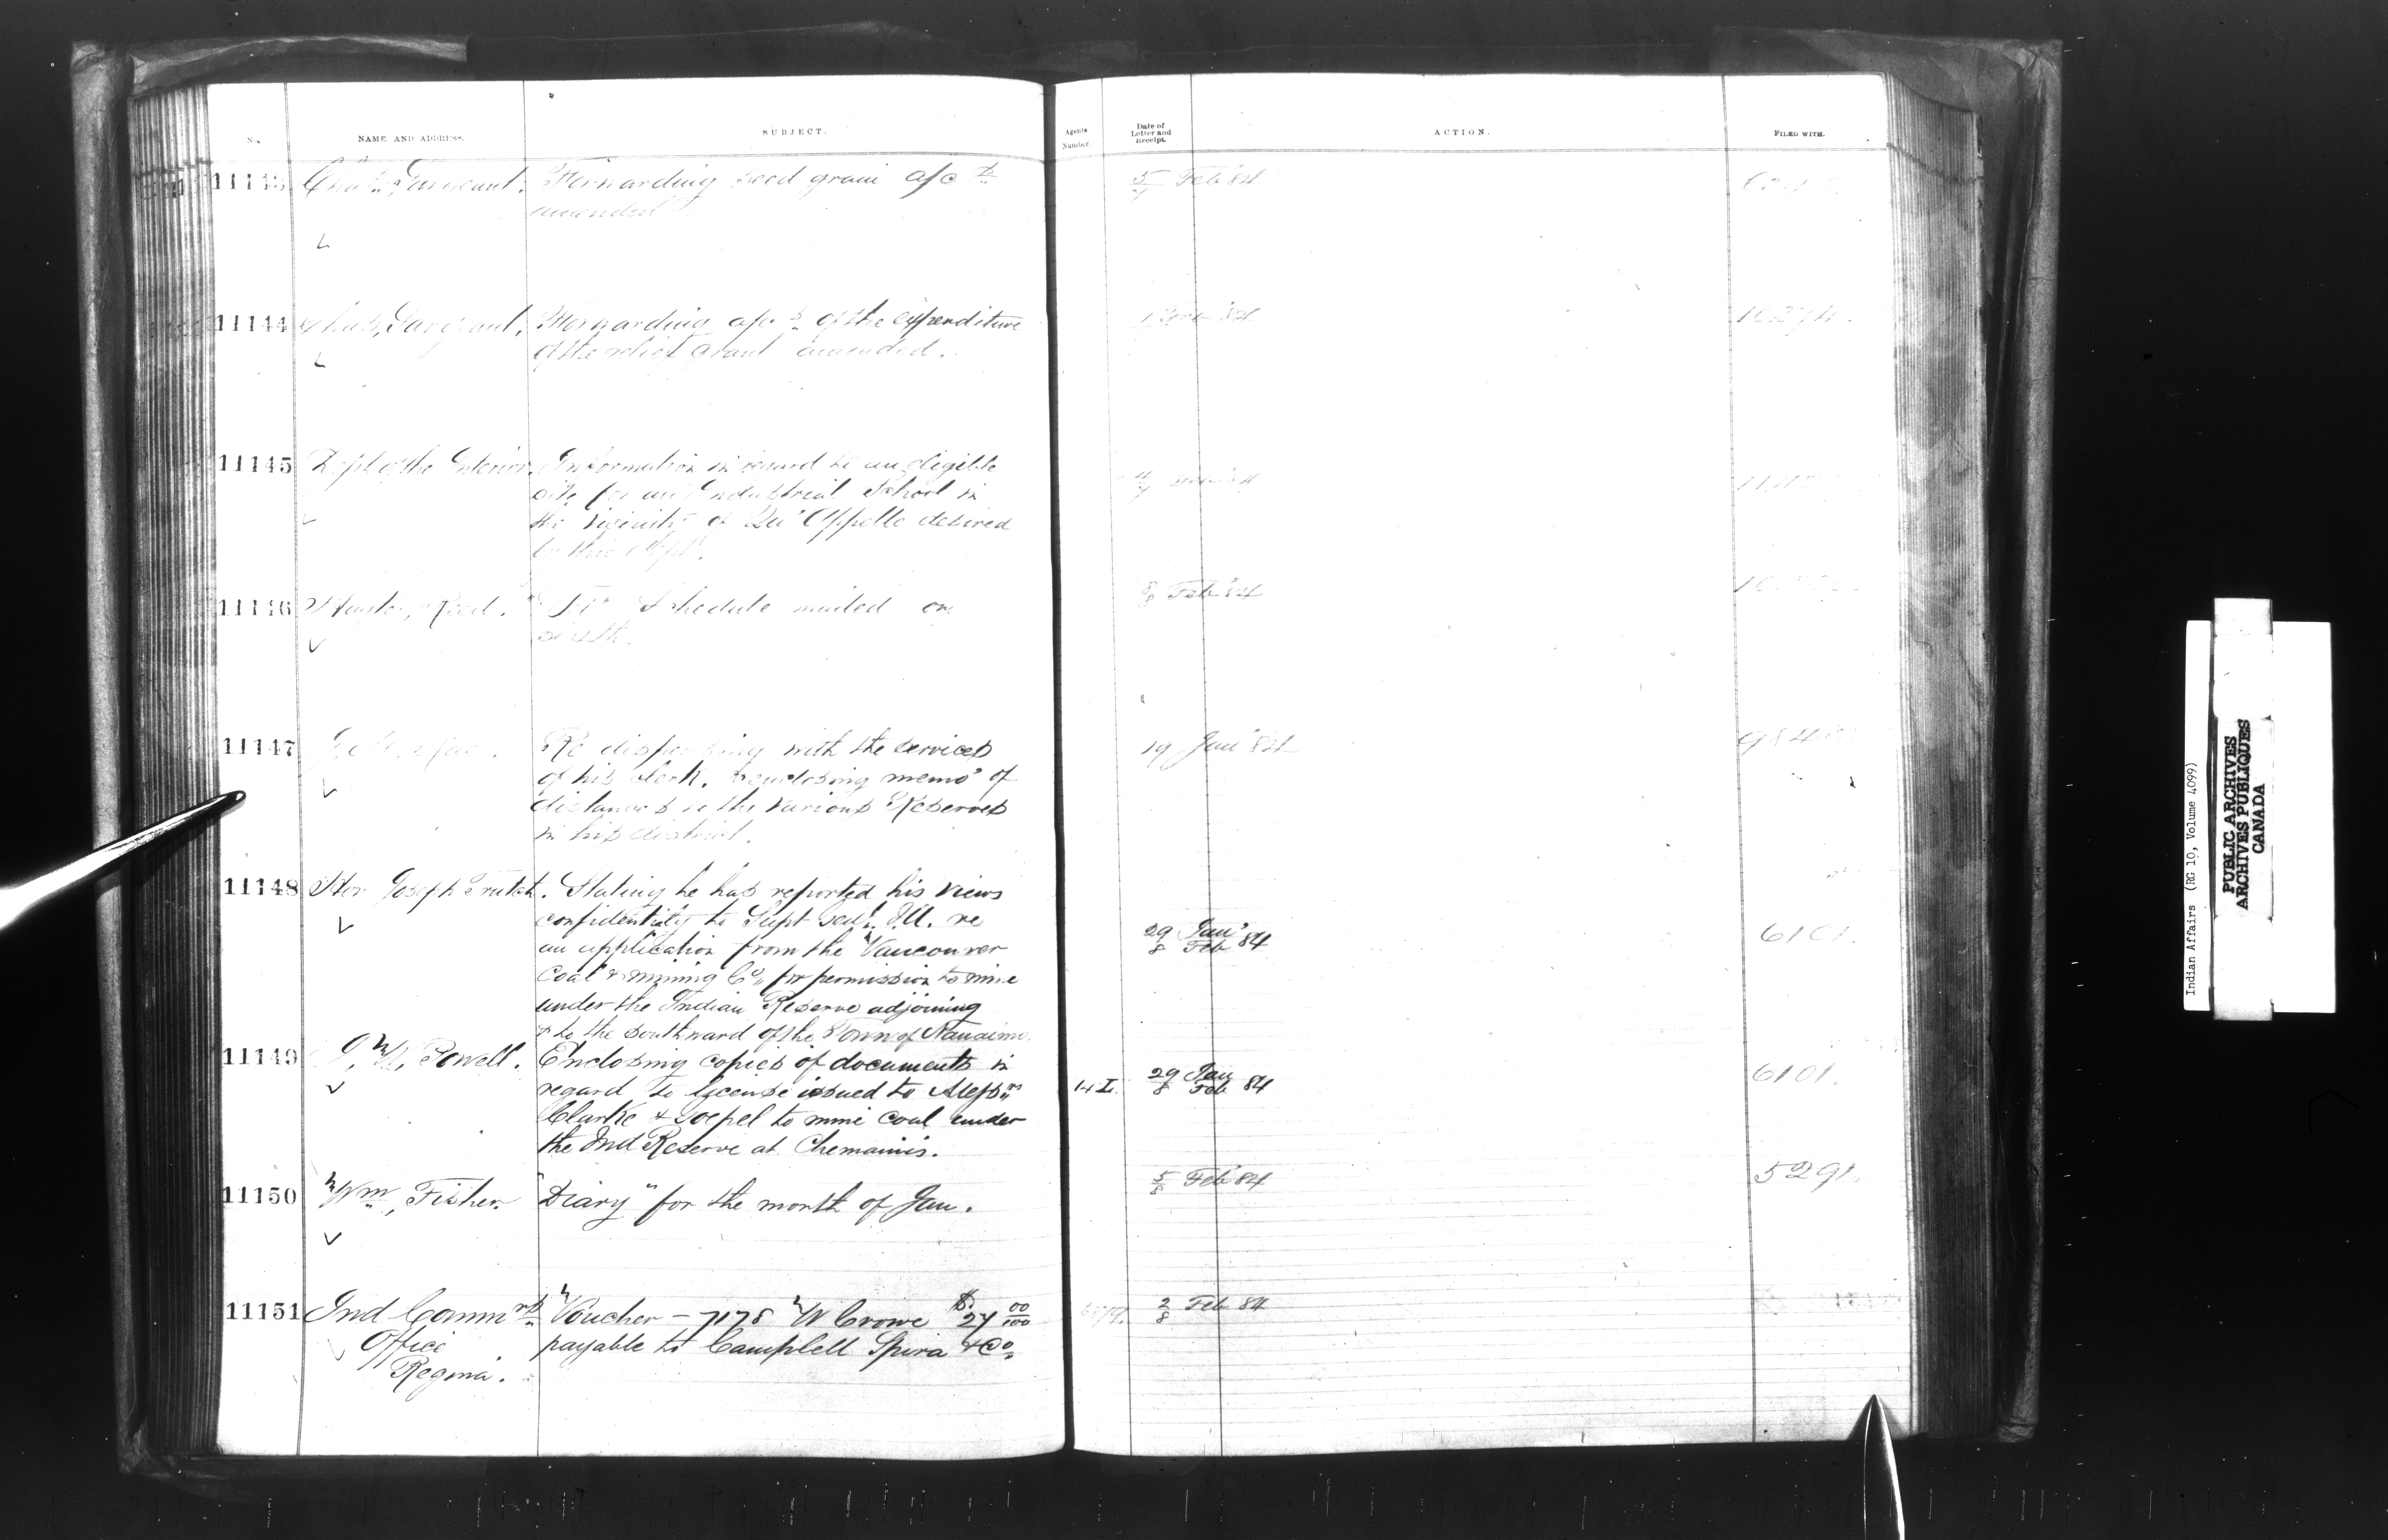 No.
NAME AND ADDRESS.
SUBJECT.
Agents Number.
Date of Letter and Receipt.
ACTION.
FILED WITH.
11143 Forwarding seed grain a/c
amended
5 Feb 84
11144 Forwarding of the expenditure
of the relief grant amended.
84
10274.
11145 Dept of the Interior. Information in regard to an eligible
site for an Industrial School in
the vicinity of Qu'Appelle desired
by this Dept.
11146 Hayter Reed. Schedule mailed on
8 Feb 84
11147 Re dispensing with the services
of his clerk, & enclosing memo of
distances to the various Reserves
in his district.
19 Jan 84
11148 Hon Joseph Trutch. Stating he has reported his views
confidentially to Supt Genl. I.A. re
an application from the Vancouver
Coal & Mining Co. for permission to mine
under the Indian Reserve adjoining
& to the southward of the Town of Nanaimo.
29 Jan
8 Feb 84
6101.
11149 I. W. Powell. Enclosing copies of documents in
regard to license issued to Messrs
Clarke & Goepel to mine coal under
the Ind Reserve at Chemainis.
14 I.
29 Jan
8 Feb 84
6101.
11150 Wm. Fisher. "Diary" for the month of Jan.
5/8 Feb 84
5291.
11151 Ind Commrs Voucher - 7178 W Crowe $27 00/100
Office payable to Campbell Spira & Co.
Regina.
2/8 Feb 84
Indian Affairs (RG 10, Volume 4099)
PUBLIC ARCHIVES
ARCHIVES PUBLIQUES
CANADA